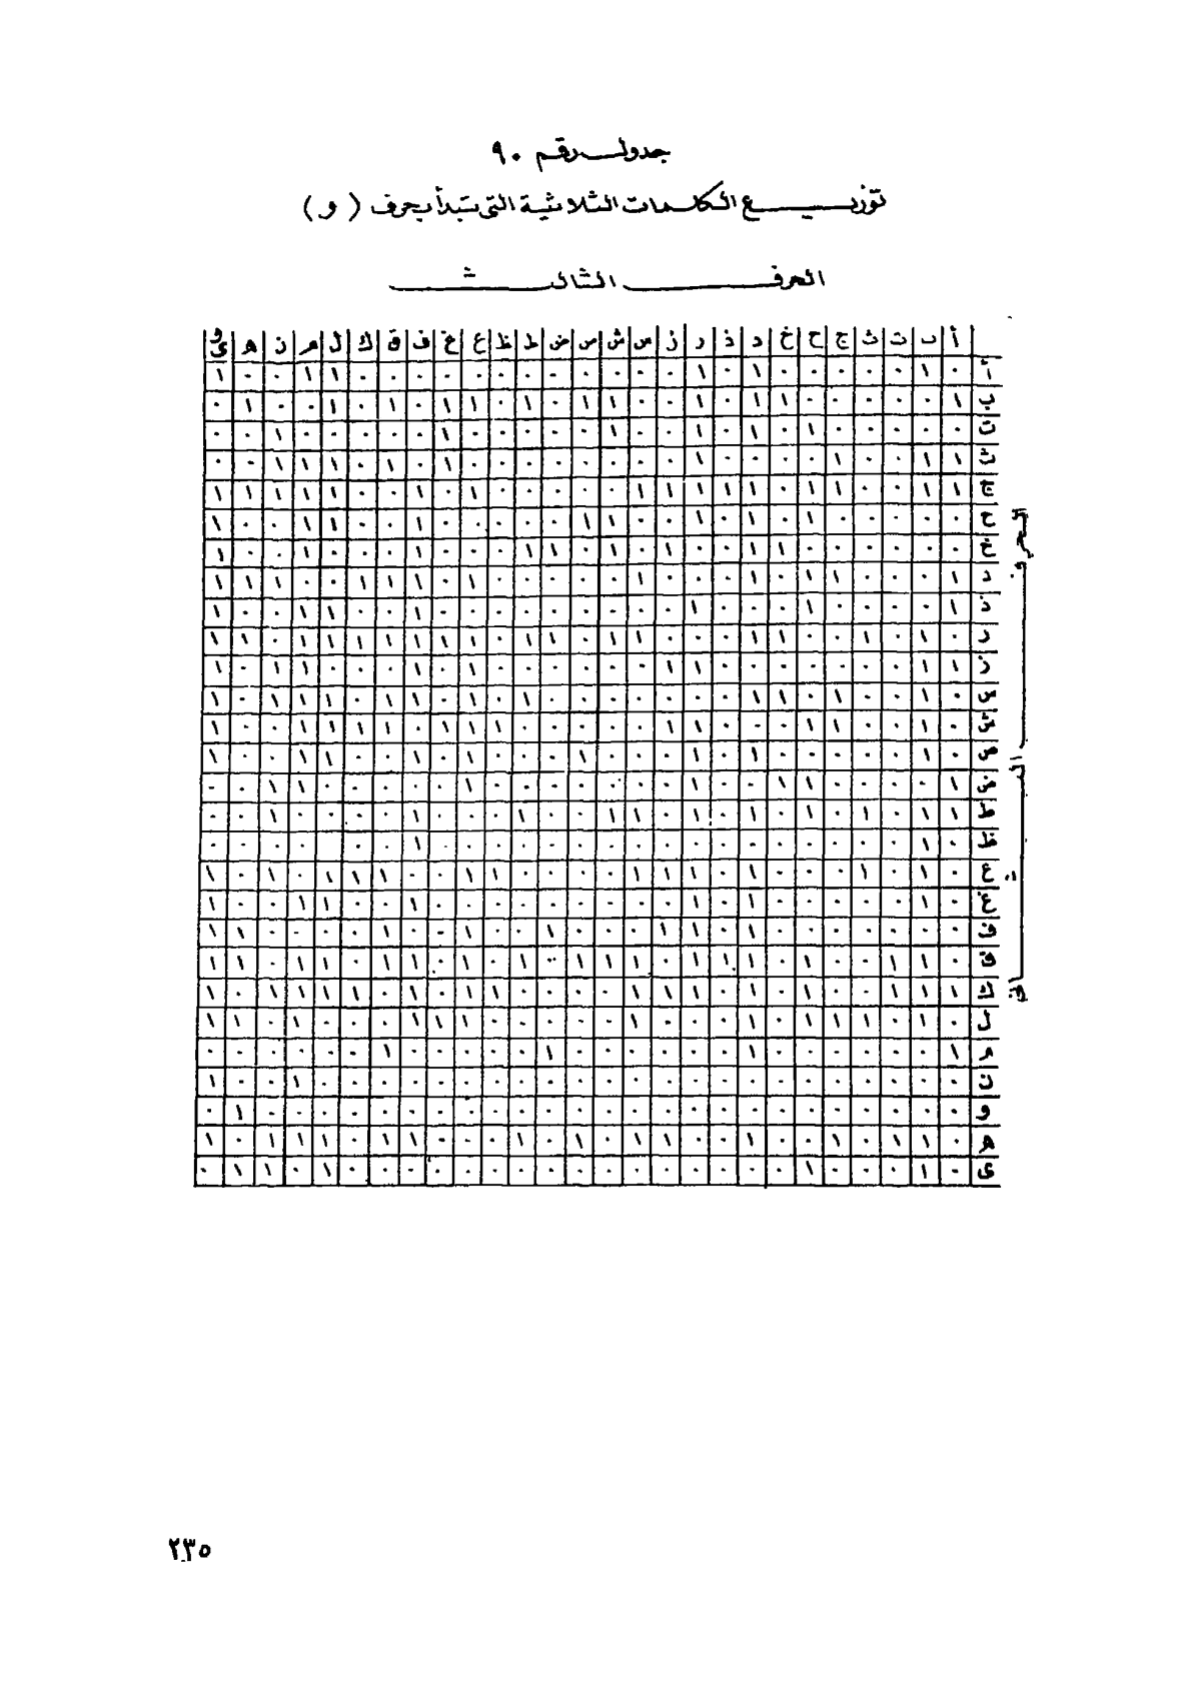 جدول رقم ٩٠
توزيع الكلمات الثلاثية التى تبدأ بحرف (و)
الحرف الثالث
أ ب ت ث ج ح خ د ذ ر ز س ش ص ض ط ظ ع غ ف ق ك ل م ن ه و ى
أ ٠ ١ ٠ ٠ ٠ ٠ ٠ ١ ٠ ١ ٠ ٠ ٠ ٠ ٠ ٠ ٠ ٠ ٠ ٠ ٠ ٠ ١ ١ ٠ ٠ ١
ب ١ ٠ ٠ ٠ ٠ ٠ ١ ١ ٠ ١ ٠ ٠ ١ ١ ٠ ١ ٠ ١ ١ ٠ ١ ٠ ١ ٠ ٠ ١ ٠
ت ٠ ٠ ٠ ٠ ٠ ١ ٠ ١ ٠ ١ ٠ ٠ ١ ٠ ٠ ٠ ٠ ٠ ١ ٠ ٠ ٠ ٠ ٠ ١ ٠ ٠
ث ١ ١ ٠ ٠ ١ ٠ ٠ ٠ ٠ ١ ٠ ٠ ٠ ٠ ٠ ٠ ٠ ٠ ١ ٠ ١ ٠ ١ ١ ١ ٠ ٠
ج ١ ١ ٠ ٠ ١ ١ ٠ ١ ١ ١ ١ ١ ٠ ٠ ٠ ٠ ٠ ١ ٠ ١ ٠ ٠ ١ ١ ١ ١ ١
ح ٠ ٠ ٠ ٠ ٠ ١ ٠ ١ ٠ ١ ٠ ٠ ١ ١ ٠ ٠ ٠ ٠ ٠ ١ ٠ ٠ ١ ١ ٠ ٠ ١
خ ٠ ٠ ٠ ٠ ٠ ٠ ١ ١ ٠ ٠ ١ ٠ ١ ٠ ١ ١ ٠ ٠ ٠ ١ ٠ ٠ ٠ ١ ٠ ٠ ١
د ١ ٠ ٠ ٠ ١ ١ ٠ ١ ٠ ٠ ٠ ١ ٠ ٠ ٠ ٠ ٠ ١ ٠ ١ ١ ١ ٠ ٠ ١ ١ ١
ذ ١ ٠ ٠ ٠ ٠ ١ ٠ ٠ ٠ ١ ٠ ٠ ٠ ٠ ٠ ٠ ٠ ٠ ٠ ١ ٠ ٠ ١ ١ ٠ ٠ ١
ر ٠ ١ ٠ ١ ٠ ٠ ١ ١ ٠ ٠ ٠ ١ ١ ٠ ١ ١ ٠ ١ ١ ١ ١ ١ ١ ١ ٠ ١ ١
ز ١ ١ ٠ ٠ ٠ ٠ ٠ ٠ ٠ ١ ١ ٠ ٠ ٠ ٠ ٠ ٠ ١ ٠ ١ ٠ ٠ ٠ ١ ١ ٠ ١
س ٠ ١ ٠ ٠ ١ ٠ ١ ١ ٠ ٠ ٠ ٠ ٠ ٠ ٠ ١ ٠ ١ ٠ ١ ١ ٠ ١ ١ ١ ٠ ١
ش ٠ ١ ٠ ٠ ١ ١ ٠ ٠ ٠ ١ ١ ٠ ٠ ٠ ٠ ٠ ١ ١ ١ ٠ ١ ١ ١ ١ ٠ ٠ ١
ص ٠ ١ ٠ ٠ ٠ ٠ ٠ ١ ٠ ١ ٠ ٠ ٠ ١ ٠ ٠ ٠ ١ ٠ ١ ٠ ٠ ١ ١ ٠ ٠ ١
ض ١ ٠ ٠ ٠ ٠ ١ ١ ٠ ٠ ١ ٠ ٠ ٠ ٠ ٠ ٠ ٠ ١ ٠ ٠ ٠ ٠ ٠ ١ ١ ٠ ٠
ط ١ ١ ٠ ١ ٠ ١ ٠ ١ ٠ ١ ٠ ١ ١ ٠ ٠ ١ ٠ ٠ ٠ ١ ٠ ٠ ٠ ٠ ١ ٠ ٠
ظ ٠ ١ ٠ ٠ ٠ ٠ ٠ ٠ ٠ ٠ ٠ ٠ ٠ ٠ ٠ ٠ ٠ ٠ ٠ ١ ٠ ٠ ٠ ٠ ٠ ٠
ع ٠ ١ ٠ ١ ٠ ٠ ٠ ١ ٠ ١ ١ ١ ٠ ٠ ٠ ٠ ١ ١ ٠ ٠ ١ ١ ١ ٠ ١ ٠ ١
غ ٠ ١ ٠ ٠ ٠ ٠ ٠ ١ ٠ ١ ٠ ٠ ٠ ٠ ٠ ٠ ٠ ٠ ٠ ١ ٠ ٠ ١ ١ ٠ ٠ ١
ف ٠ ٠ ٠ ٠ ٠ ٠ ٠ ١ ٠ ١ ١ ٠ ٠ ٠ ١ ٠ ٠ ١ ٠ ٠ ١ ٠ ٠ ٠ ٠ ١ ١
ق ٠ ١ ١ ٠ ٠ ١ ٠ ١ ١ ١ ٠ ١ ١ ١ ٠ ١ ٠ ١ ٠ ١ ١ ٠ ١ ١ ٠ ١ ١
ك ١ ١ ١ ٠ ٠ ١ ٠ ١ ٠ ١ ١ ١ ٠ ٠ ٠ ٠ ١ ١ ٠ ١ ٠ ١ ١ ١ ١ ٠ ١
ل ٠ ١ ٠ ١ ١ ١ ٠ ١ ٠ ٠ ٠ ١ ٠ ٠ ٠ ٠ ٠ ١ ١ ١ ٠ ٠ ٠ ١ ٠ ١ ١
م ١ ٠ ٠ ٠ ٠ ٠ ٠ ١ ٠ ٠ ٠ ٠ ٠ ٠ ١ ٠ ٠ ٠ ٠ ٠ ١ ٠ ٠ ٠ ٠ ٠ ٠
ن ٠ ٠ ٠ ٠ ٠ ٠ ٠ ٠ ٠ ٠ ٠ ٠ ٠ ٠ ٠ ٠ ٠ ٠ ٠ ٠ ٠ ٠ ٠ ١ ٠ ٠ ١
و ٠ ٠ ٠ ٠ ٠ ٠ ٠ ٠ ٠ ٠ ٠ ٠ ٠ ٠ ٠ ٠ ٠ ٠ ٠ ٠ ٠ ٠ ٠ ٠ ٠ ١ ٠
ه ٠ ١ ١ ٠ ١ ٠ ٠ ١ ٠ ٠ ١ ١ ٠ ١ ٠ ١ ٠ ٠ ٠ ١ ١ ٠ ١ ١ ١ ٠ ١
ى ٠ ١ ٠ ٠ ٠ ١ ٠ ٠ ٠ ٠ ٠ ٠ ٠ ٠ ٠ ٠ ٠ ٠ ٠ ٠ ٠ ٠ ١ ٠ ١ ١ ٠
٢٣٥